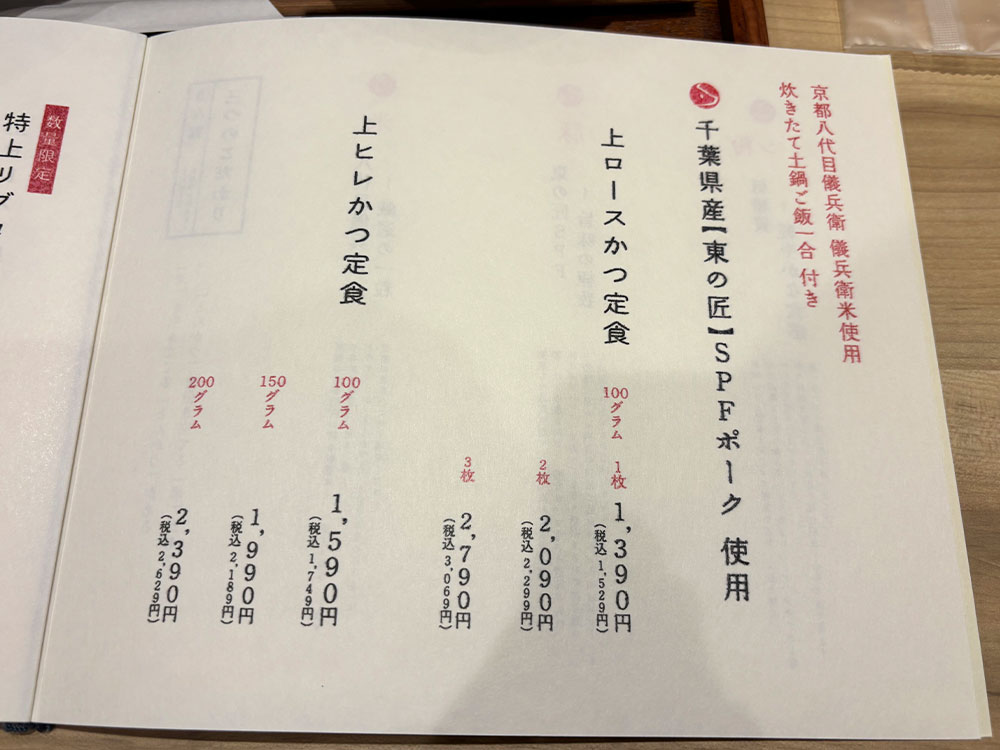 京都八代目儀兵衛 儀兵衛米使用
炊きたて土鍋ご飯一合 付き
千葉県産【東の匠】SPFポーク 使用
上ロースかつ定食
100グラム 1枚 1,390円
(税込 1,529円)
2枚 2,090円
(税込 2,299円)
3枚 2,790円
(税込 3,069円)
上ヒレかつ定食
100グラム 1,590円
(税込 1,749円)
150グラム 1,990円
(税込 2,189円)
200グラム 2,390円
(税込 2,629円)
数量限定
特上リブ